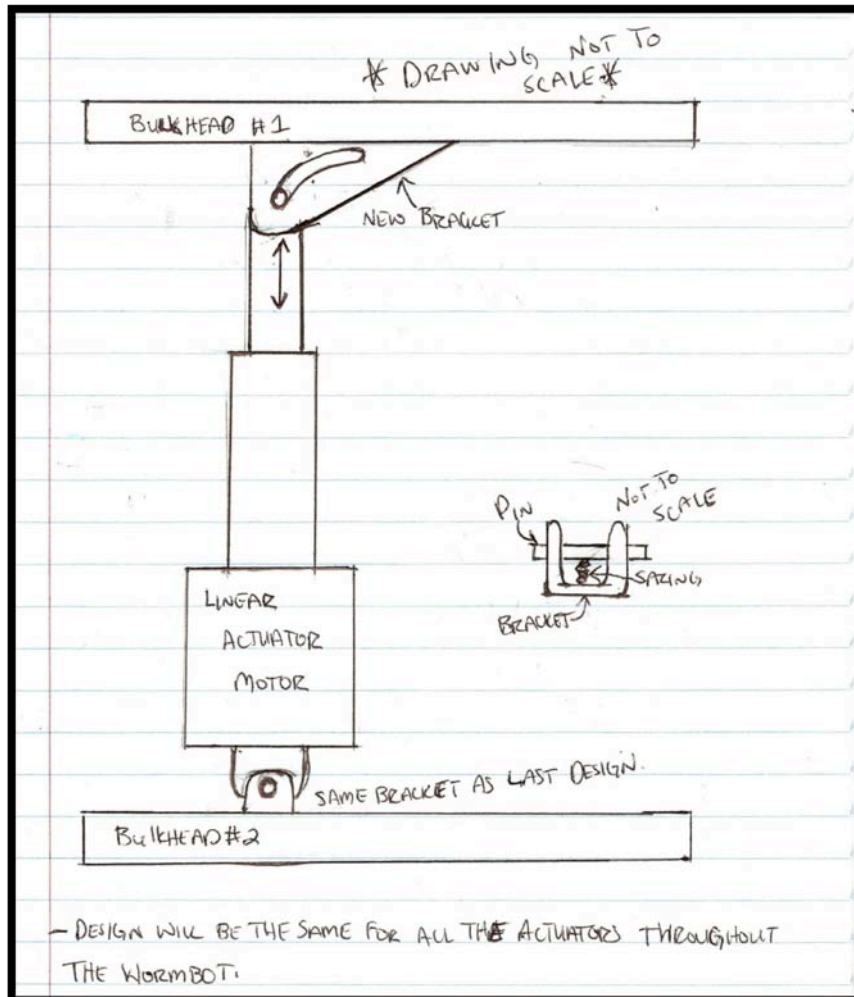 * DRAWING NOT TO
SCALE *
BULKHEAD #1
NEW BRACKET
PIN
NOT TO
SCALE
SPRING
BRACKET
LINEAR
ACTUATOR
MOTOR
SAME BRACKET AS LAST DESIGN.
BulKHEAD #2
- DESIGN WILL BE THE SAME FOR ALL THE ACTUATORS THROUGHOUT
THE WORMBOT.